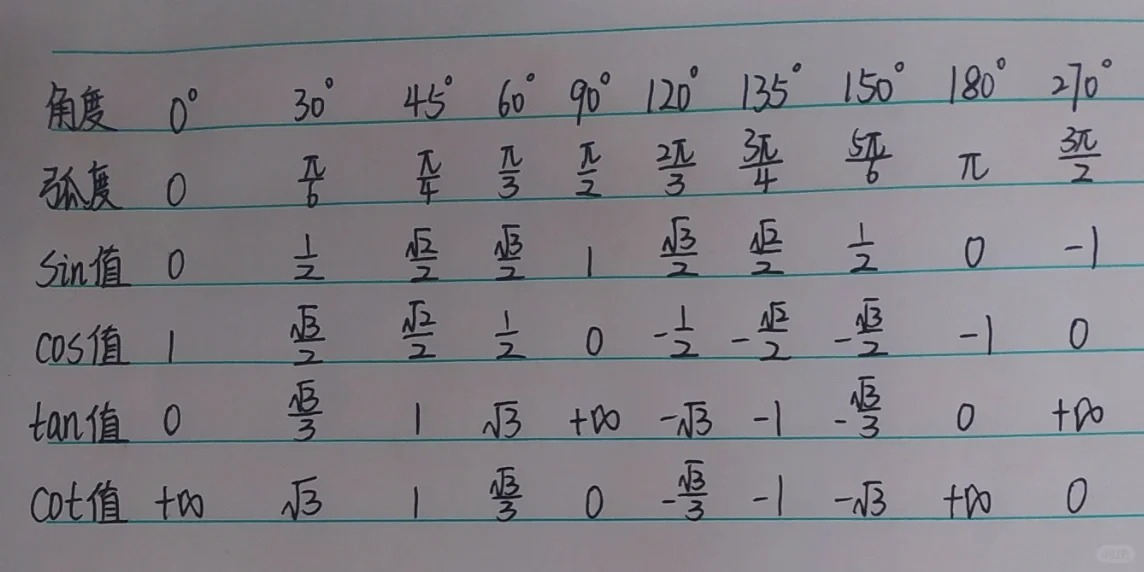 角度 0° 30° 45° 60° 90° 120° 135° 150° 180° 270°
弧度 0 π/6 π/4 π/3 π/2 2π/3 3π/4 5π/6 π 3π/2
sin值 0 1/2 √2/2 √3/2 1 √3/2 √2/2 1/2 0 -1
cos值 1 √3/2 √2/2 1/2 0 -1/2 -√2/2 -√3/2 -1 0
tan值 0 √3/3 1 √3 +∞ -√3 -1 -√3/3 0 +∞
cot值 +∞ √3 1 √3/3 0 -√3/3 -1 -√3 +∞ 0